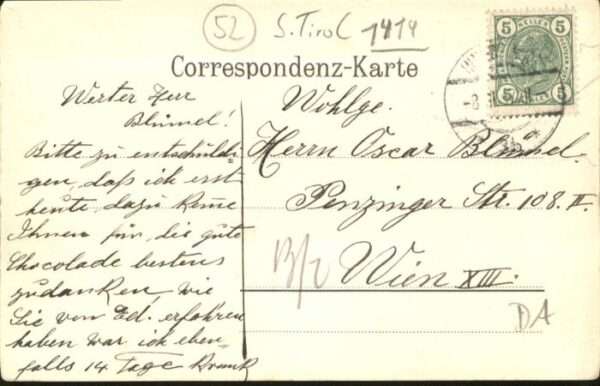 52 S. Tirol 1914
5 HELLER 5
5 5
Correspondenz-Karte
Werter Herr
Blümel!
Bitte zu entschuldi-
gen, daß ich erst
heute dazu kome
Ihnen für die gute
Chocolade bestens
zu danken, wie
Sie von Ed. erfahren
haben war ich eben-
falls 14 Tage krank
Wohlge.
Herrn Oscar Blümel.
Penzinger Str. 108. II.
Wien XIII.
DA